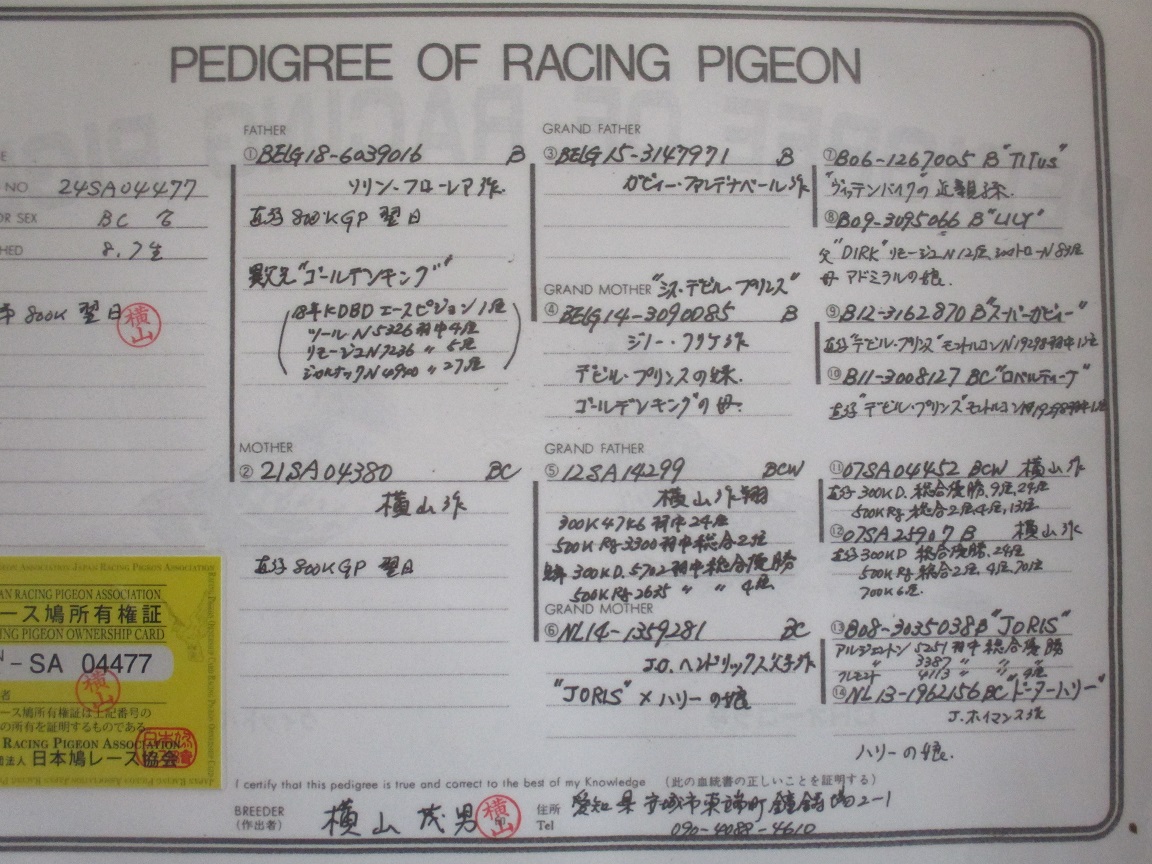 PEDIGREE OF RACING PIGEON
NO 24SA04477
OR SEX BC ♂
HED 8.7生
800K 翌日
横山
FATHER
①BELG18-6039016 B
ソリン・フローレア作
直仔 800K GP 翌日
異父兄"ゴールデンキング"
18年KDBD エースピジョン 1位
ツールN 5326羽中4位
リモージュN 7236 〃 5位
N 4900 〃 27位
MOTHER
②21SA04380 BC
横山作
直仔 800K GP 翌日
GRAND FATHER
③BELG15-3147971 B
ガビー・ファンデナベール作
GRAND MOTHER "ミス・デビル・プリンス"
④BELG14-3090085 B
デビル・プリンスの妹.
ゴールデンキングの母.
GRAND FATHER
⑤12SA14299 BCW
横山作翔
300K 4746羽中24位
500K Rg 3300羽中総合2位
300K D. 5702羽中総合優勝
500K Rg 2635 〃 〃 4位
GRAND MOTHER
⑥NL14-1359281 BC
J.O.ヘンドリックス父子作
"JORIS" × ハリーの娘
⑦B06-1267005 B "TITUS"
の近親孫.
⑧B09-3095066 B "LILY"
父"DIRK"リモージュN12位,
母 アドミラルの娘.
⑨B12-3162870 B"スーパーガビー"
直仔"デビル・プリンス" モントルコンN19298羽中1位
⑩B11-3008127 BC
直仔"デビル・プリンス"モントルコンN19298羽中1位
⑪07SA04452 BCW 横山作
直仔 300K D. 総合優勝, 9位, 24位
500K Rg 総合2位, 4位, 13位
⑫07SA25907 B 横山作
直仔 300K D 総合優勝, 24位
500K Rg 総合2位, 4位, 70位
700K 6位.
⑬B08-3035038 B "JORIS"
アルジェントン 5251羽中 総合優勝
〃 3387 〃 〃 〃
4113 〃 〃 4位
⑭NL13-1962156 BC "ドーターハリー"
J.ホイマンス作
ハリーの娘.
AN RACING PIGEON ASSOCIATION
ース鳩所有権証
ING PIGEON OWNERSHIP CARD
-SA 04477
横山
ース鳩所有権証は上記番号の
の所有を証明するものである
RACING PIGEON ASSOCIATION
法人 日本鳩レース協会
I certify that this pedigree is true and correct to the best of my Knowledge （此の血統書の正しいことを証明する）
BREEDER
(作出者) 横山茂男
横山
住所 愛知県安城市東端町鐘鋳場2-1
Tel 090-4088-4610